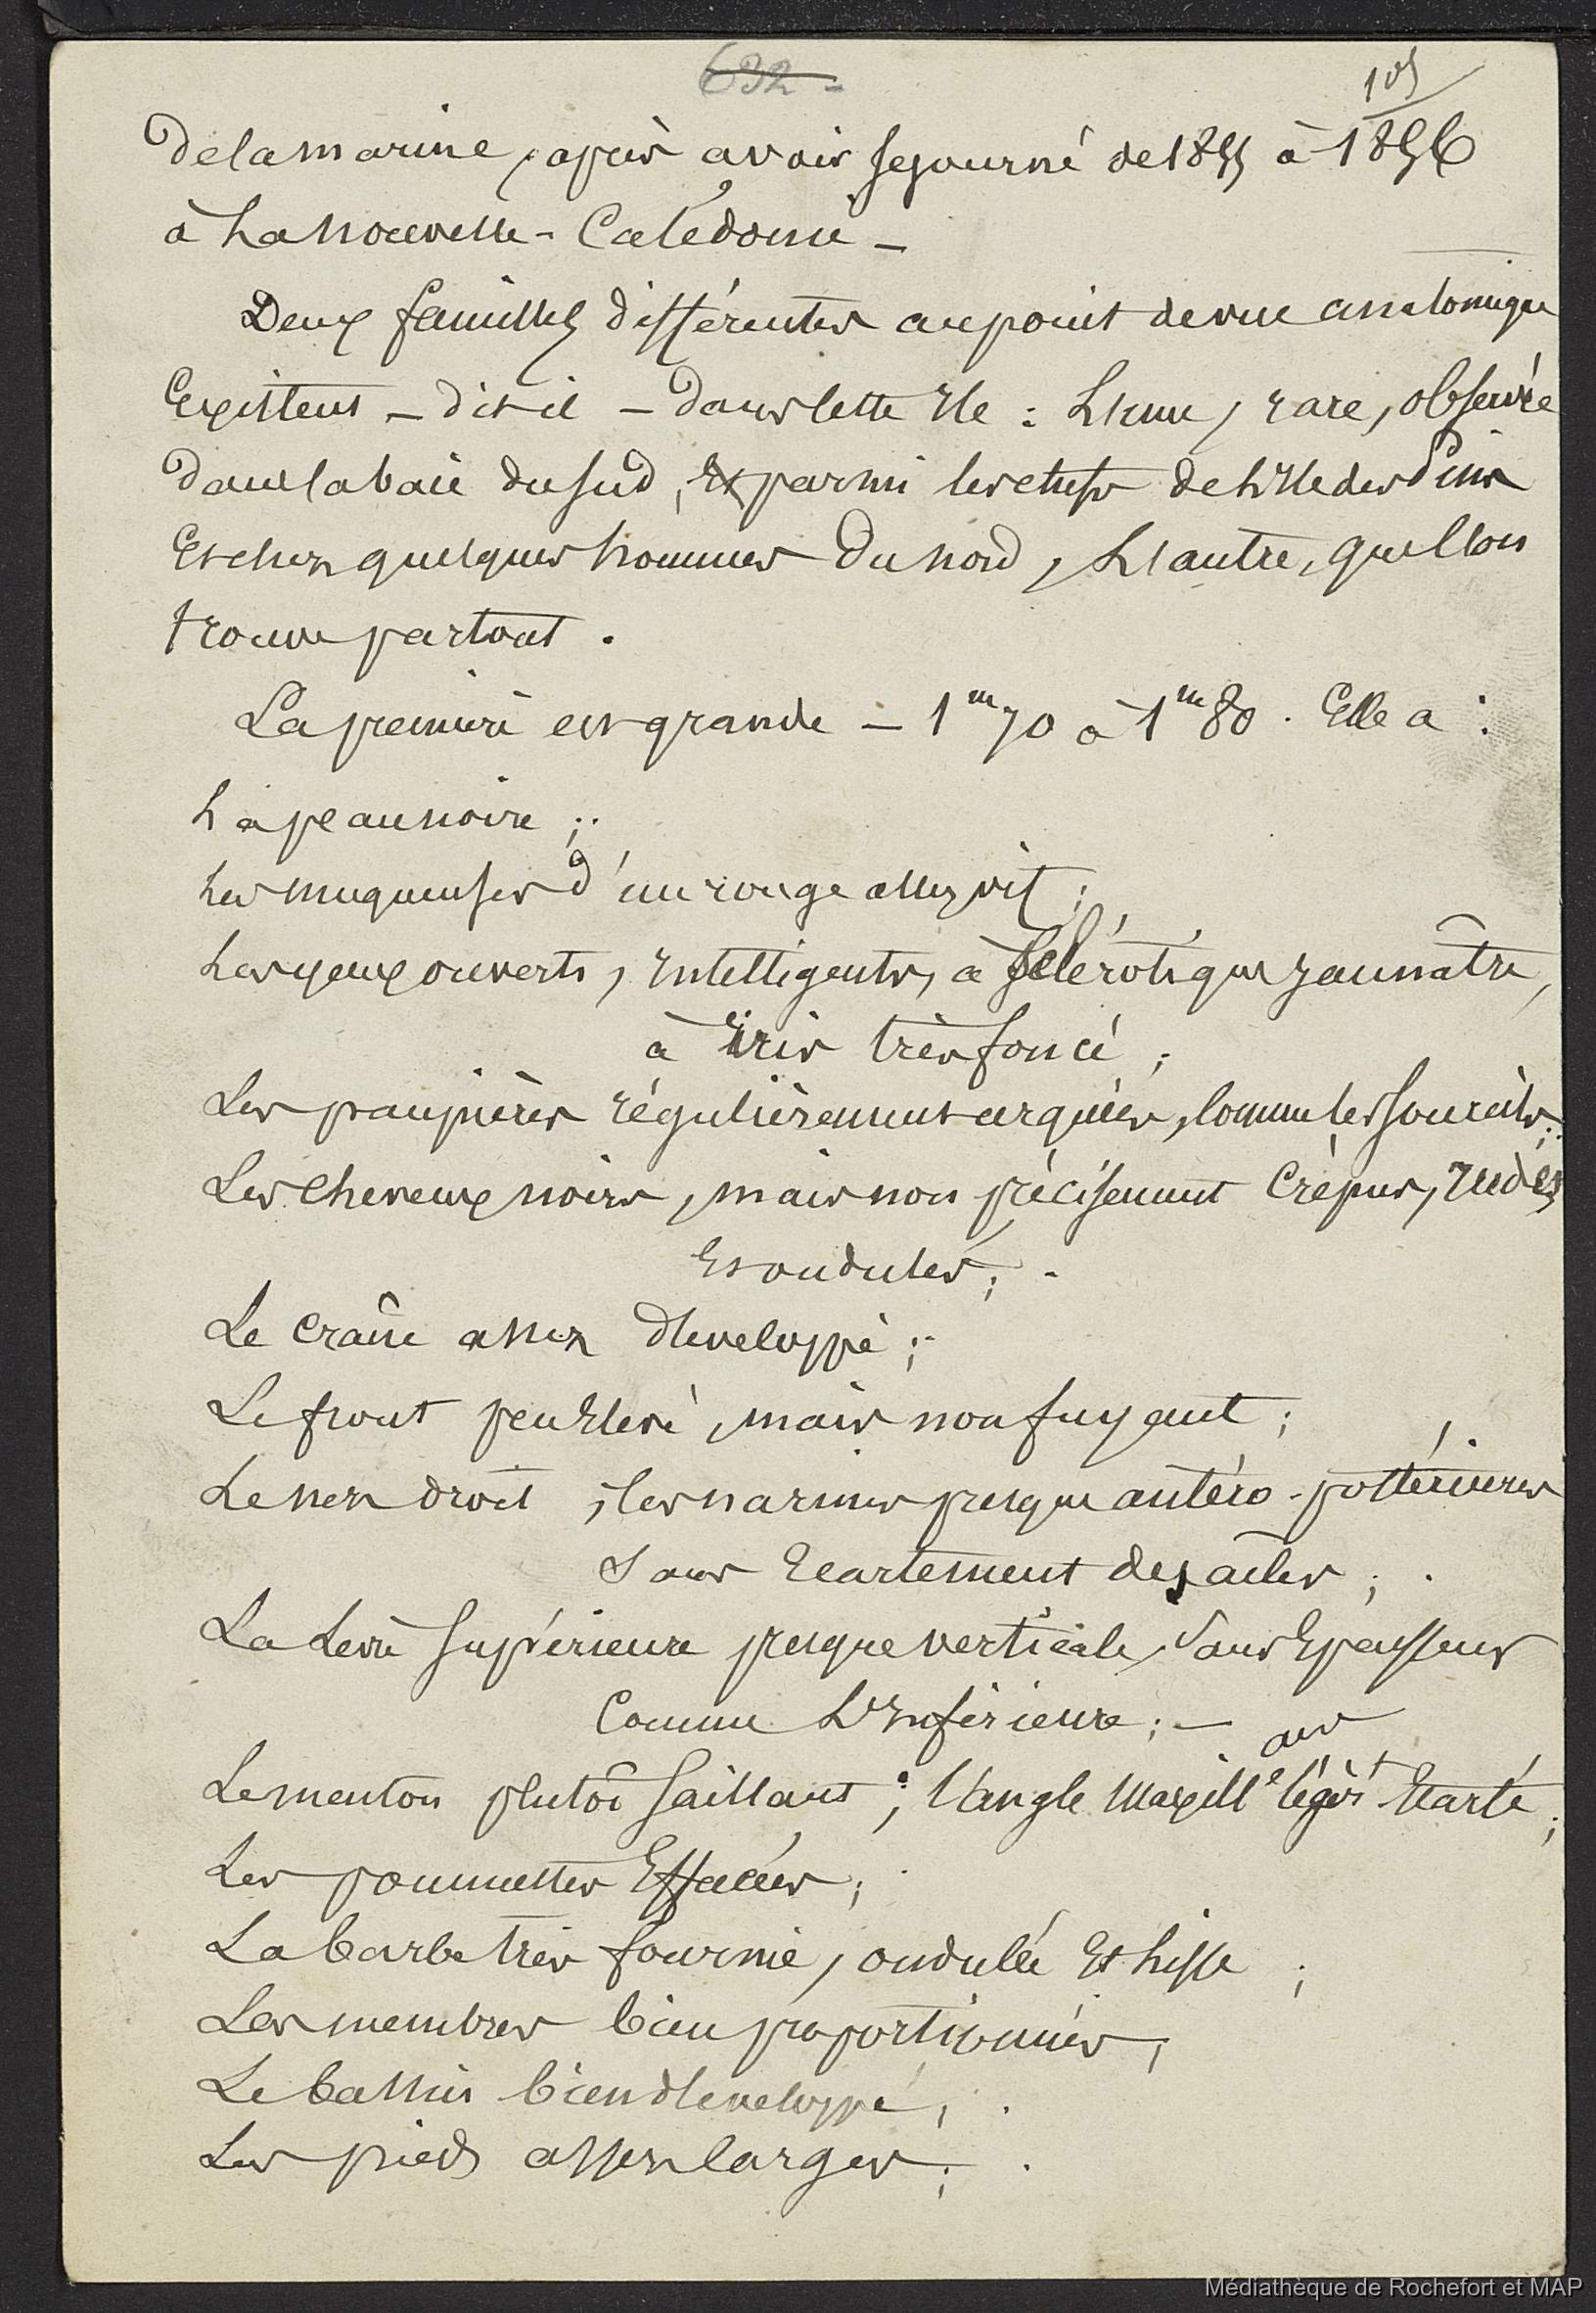 632 -
105
de la marine, après avoir sejourné de 1855 à 1856
à La Nouvelle-Calédonie -
Deux familles différentes au point de vue anatomique
Existent - dit-il - dans cette Ile : L'une, rare, observée
dans la baie du sud, Et parmi les chefs de L'Ile des Pins
Et chez quelques hommes du nord, L'autre, que l'on
trouve partout.
La première est grande - 1m70 à 1m80. Elle a :
La peau noire ;
Les muqueuses d'un rouge assez vif ;
Les yeux ouverts, Intelligents, à sclérotique jaunâtre,
à Iris très foncé ;
Les paupières régulièrement arquées, comme les sourcils ;
Les cheveux noirs, mais non précisement Crèpus, rudes
Et ondulés ; -
Le crâne assez développé ;
Le front peu Elevé, mais non fuyant ;
Le nez droit, les narines presque antéro-postérieures
sans Ecartement des ailes ;
La Levre supérieure presque verticale, sans Epaisseur
Comme L'Inférieure ; -
Le menton plutôt saillant ; l'angle Maxillre légèrt Ecarté ;
Les pommettes Effacées ;
La barbe très fournie, ondulée Et Lisse ;
Les membres bien proportionnés ;
Le bassin bien développé ;
Les pieds assez larges ;
Médiathèque de Rochefort et MAP